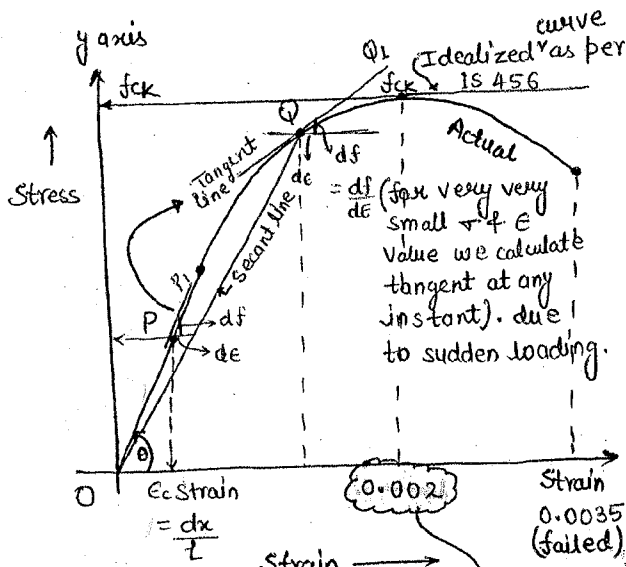 y axis
curve
Q1
Idealized as per
IS 456
fck
fck
Q
Actual
Tangent
line
df
dε
Stress
= df/dε (for very very
small σ & ε
value we calculate
tangent at any
instant). due
to sudden loading.
Secant line
P1
P
df
dε
θ
O
εc Strain
= dx/l
0.002
Strain
0.0035
(failed)
Strain